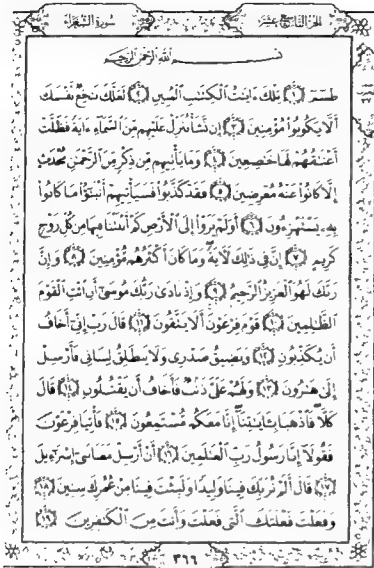 الجزء التاسع عشر سورة الشعراء
بسم الله الرحمن الرحيم
طسٓمٓ ﴿١﴾ تِلْكَ ءَايَٰتُ ٱلْكِتَٰبِ ٱلْمُبِينِ ﴿٢﴾ لَعَلَّكَ بَٰخِعٌ نَّفْسَكَ
أَلَّا يَكُونُوا۟ مُؤْمِنِينَ ﴿٣﴾ إِن نَّشَأْ نُنَزِّلْ عَلَيْهِم مِّنَ ٱلسَّمَآءِ ءَايَةً فَظَلَّتْ
أَعْنَٰقُهُمْ لَهَا خَٰضِعِينَ ﴿٤﴾ وَمَا يَأْتِيهِم مِّن ذِكْرٍ مِّنَ ٱلرَّحْمَٰنِ مُحْدَثٍ
إِلَّا كَانُوا۟ عَنْهُ مُعْرِضِينَ ﴿٥﴾ فَقَدْ كَذَّبُوا۟ فَسَيَأْتِيهِمْ أَنۢبَٰٓؤُا۟ مَا كَانُوا۟
بِهِۦ يَسْتَهْزِءُونَ ﴿٦﴾ أَوَلَمْ يَرَوْا۟ إِلَى ٱلْأَرْضِ كَمْ أَنۢبَتْنَا فِيهَا مِن كُلِّ زَوْجٍ
كَرِيمٍ ﴿٧﴾ إِنَّ فِى ذَٰلِكَ لَءَايَةً وَمَا كَانَ أَكْثَرُهُم مُّؤْمِنِينَ ﴿٨﴾ وَإِنَّ
رَبَّكَ لَهُوَ ٱلْعَزِيزُ ٱلرَّحِيمُ ﴿٩﴾ وَإِذْ نَادَىٰ رَبُّكَ مُوسَىٰٓ أَنِ ٱئْتِ ٱلْقَوْمَ
ٱلظَّٰلِمِينَ ﴿١٠﴾ قَوْمَ فِرْعَوْنَ أَلَا يَتَّقُونَ ﴿١١﴾ قَالَ رَبِّ إِنِّىٓ أَخَافُ
أَن يُكَذِّبُونِ ﴿١٢﴾ وَيَضِيقُ صَدْرِى وَلَا يَنطَلِقُ لِسَانِى فَأَرْسِلْ
إِلَىٰ هَٰرُونَ ﴿١٣﴾ وَلَهُمْ عَلَىَّ ذَنۢبٌ فَأَخَافُ أَن يَقْتُلُونِ ﴿١٤﴾ قَالَ
كَلَّا فَٱذْهَبَا بِـَٔايَٰتِنَآ إِنَّا مَعَكُم مُّسْتَمِعُونَ ﴿١٥﴾ فَأْتِيَا فِرْعَوْنَ
فَقُولَآ إِنَّا رَسُولُ رَبِّ ٱلْعَٰلَمِينَ ﴿١٦﴾ أَنْ أَرْسِلْ مَعَنَا بَنِىٓ إِسْرَٰٓءِيلَ
﴿١٧﴾ قَالَ أَلَمْ نُرَبِّكَ فِينَا وَلِيدًا وَلَبِثْتَ فِينَا مِنْ عُمُرِكَ سِنِينَ ﴿١٨﴾
وَفَعَلْتَ فَعْلَتَكَ ٱلَّتِى فَعَلْتَ وَأَنتَ مِنَ ٱلْكَٰفِرِينَ ﴿١٩﴾
٣٦٦